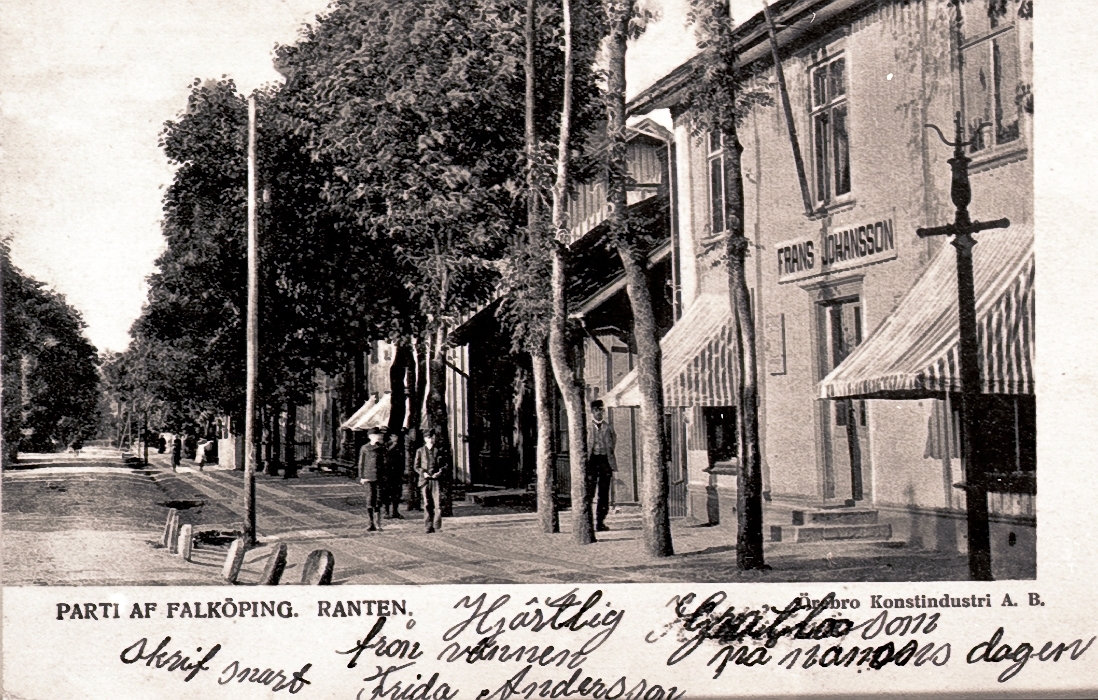 FRANS JOHANSSON
PARTI AF FALKÖPING. RANTEN.
Örebro Konstindustri A. B.
Hjärtlig som
från vännen på namnsdagen
skrif snart
Frida Andersson